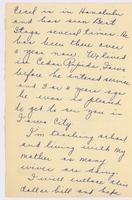 Cecil is in Honolulu
and has seen Bert
Stage several times. He
has been there over
a year now. We lived
in Cedar Rapids, Iowa
before he entered service
and I as a year ago
he was so pleased
to get to see you in
Iowa City.
I'm teaching school
and living with my
mother as many
wives are doing.
I will enclose this
dollar bill and hope